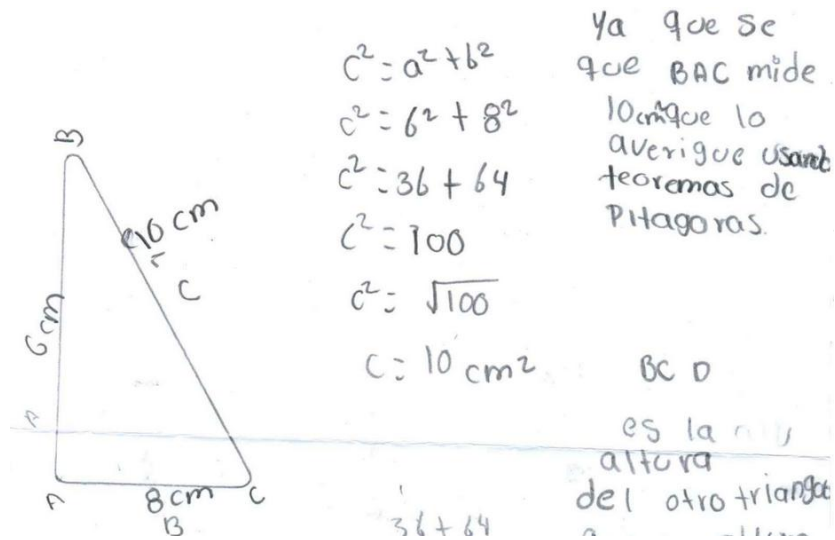 B
10 cm
C
6 cm
A
A
8 cm
C
B
c² = a² + b²
c² = 6² + 8²
c² = 36 + 64
c² = 100
c² = √100
c = 10 cm²
36 + 64
Ya que se
que BAC mide
10cm² que lo
averigue usand
teoremas de
Pitagoras.
BCD
es la
altura
del otro triangol